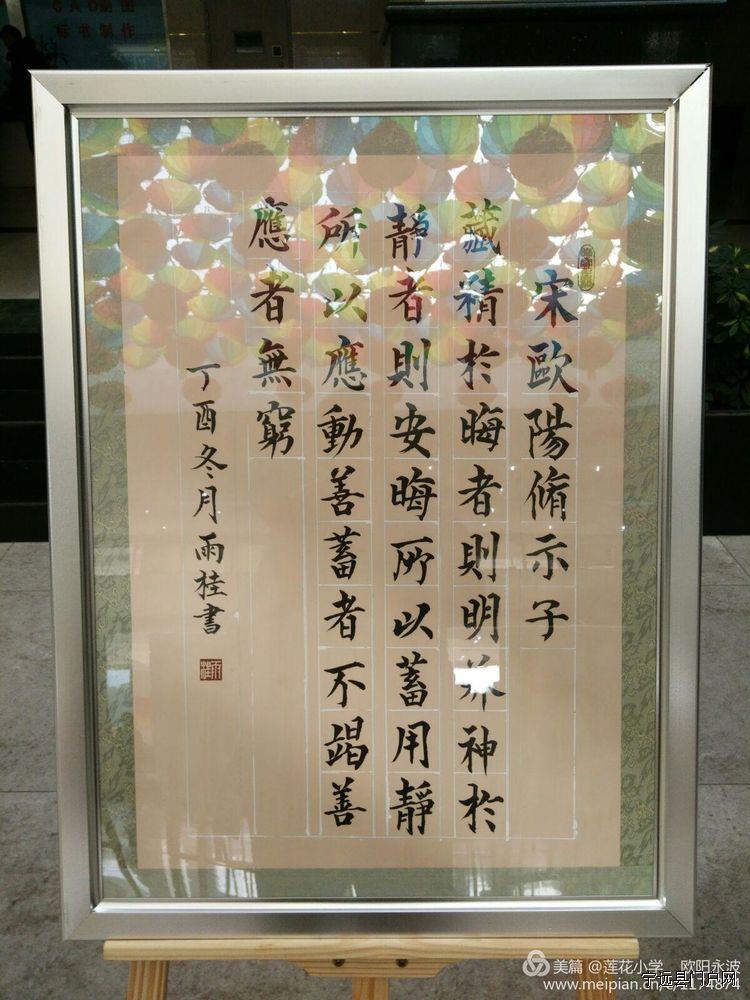 CAD制图
标书制作
宋歐陽脩示子
藏精於晦者則明神於
靜者則安晦所以蓄用靜
所以應動善蓄者不竭善
應者無窮
丁酉冬月雨桂書
美篇 @莲花小学、欧阳永波
宁远县门户网
www.meipian.cn